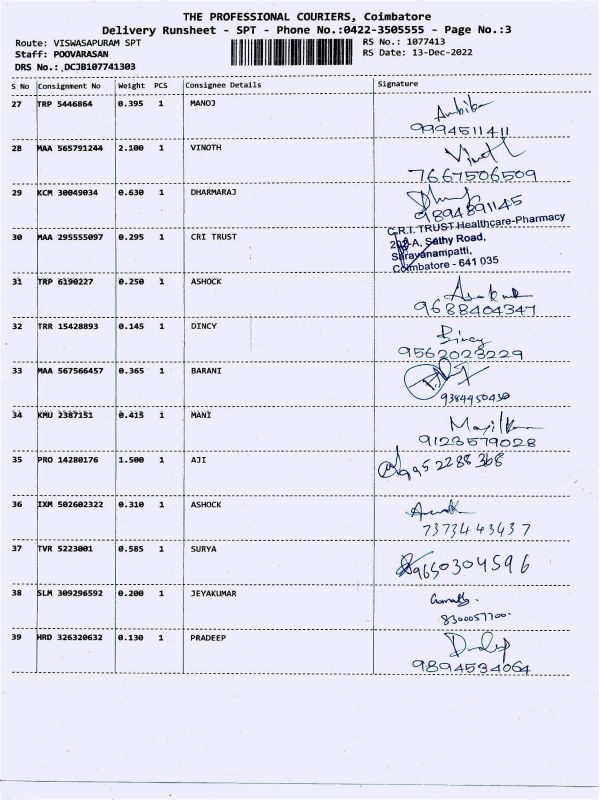 THE PROFESSIONAL COURIERS, Coimbatore
Delivery Runsheet - SPT - Phone No.:0422-3505555 - Page No.:3
Route: VISWASAPURAM SPT
RS No.: 1077413
Staff: POOVARASAN
RS Date: 13-Dec-2022
DRS No.: DCJB107741303
S No Consignment No Weight PCS Consignee Details Signature
27 TRP 5446864 0.395 1 MANOJ Ambika
9994511411
28 MAA 565791244 2.100 1 VINOTH Vinoth
7667506509
29 KCM 30049034 0.630 1 DHARMARAJ
9894891145
30 MAA 295555097 0.295 1 CRI TRUST
C.R.I. TRUST Healthcare-Pharmacy
Sathy Road,
Saravanampatti,
Coimbatore - 641 035
31 TRP 6190227 0.250 1 ASHOCK
9688404347
32 TRR 15428893 0.145 1 DINCY Dincy
9562023229
33 MAA 567566457 0.365 1 BARANI
9384950430
34 KMU 2387151 0.415 1 MANI
9123579028
35 PRO 14280176 1.500 1 AJI
9952288368
36 IXM 502602322 0.310 1 ASHOCK
7373443437
37 TVR 5223001 0.585 1 SURYA
9650304596
38 SLM 309296592 0.200 1 JEYAKUMAR
8300057700
39 HRD 326320632 0.130 1 PRADEEP
9894534064